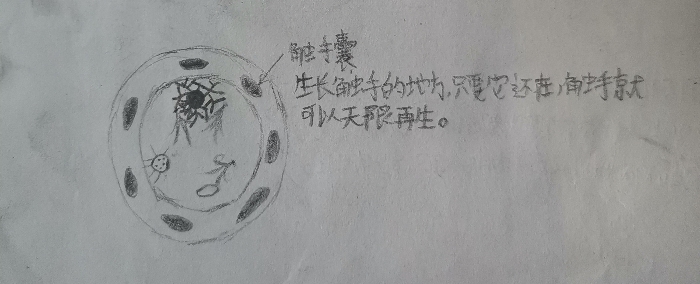 触手囊
生长触手的地方,只要它还在,触手就
可以无限再生。